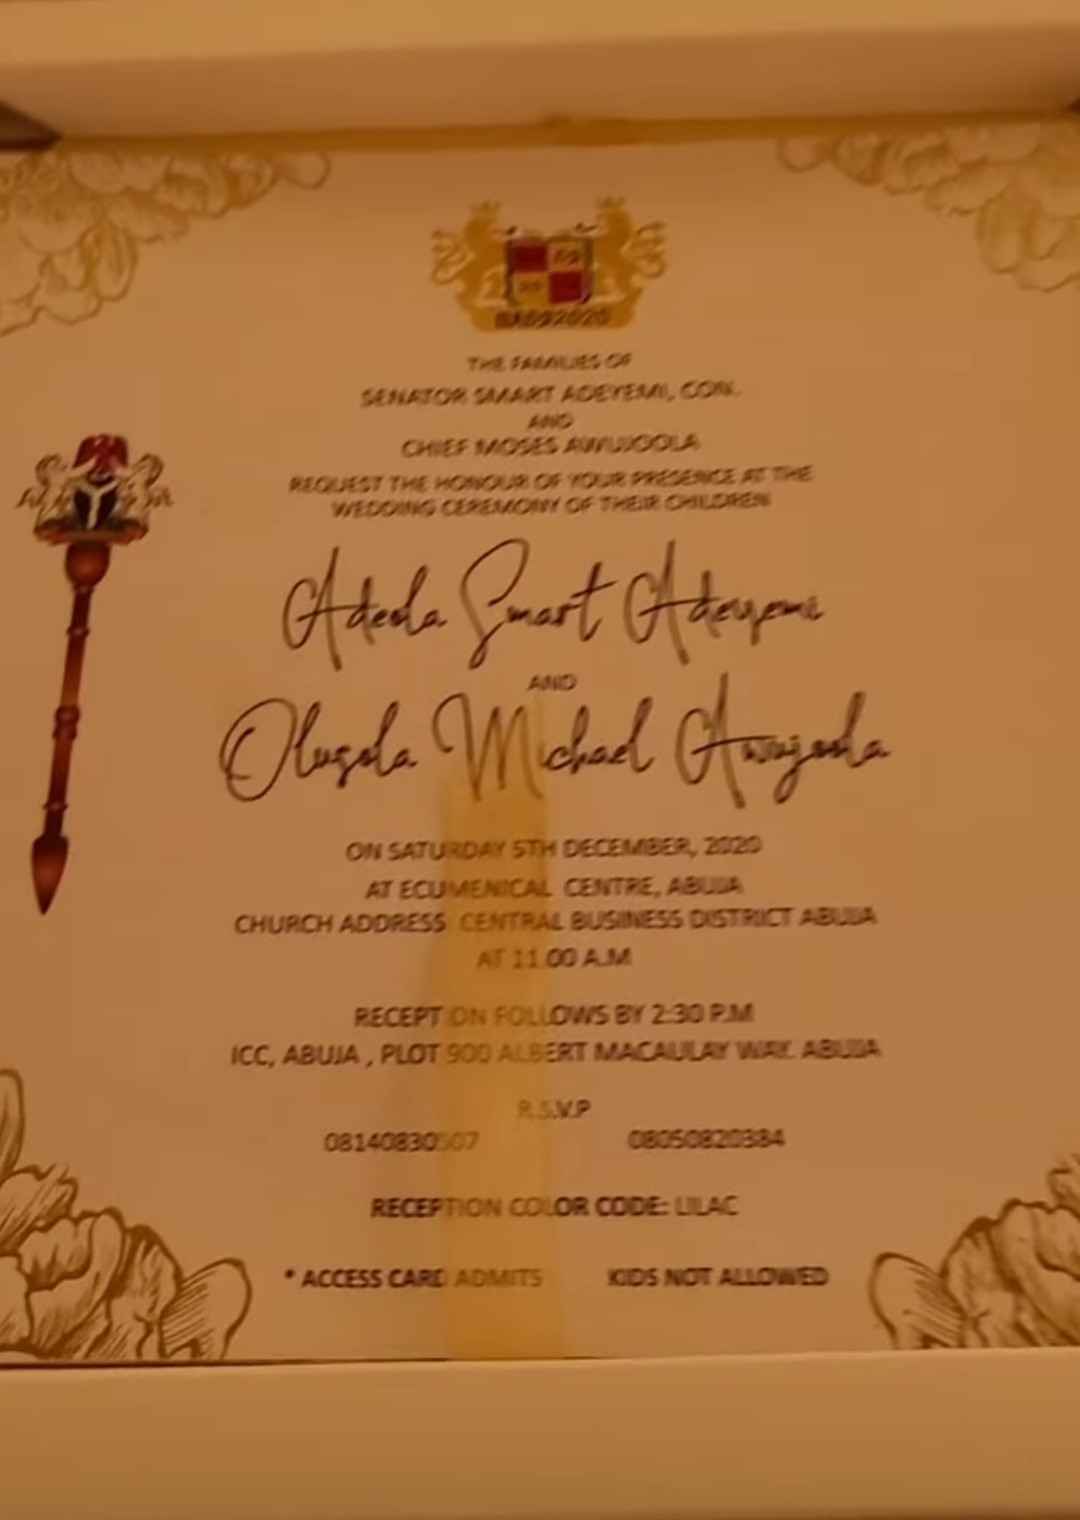 THE FAMILIES OF
SENATOR SMART ADEYEMI, CON.
AND
CHIEF MOSES AWUJOOLA
REQUEST THE HONOUR OF YOUR PRESENCE AT THE
WEDDING CEREMONY OF THEIR CHILDREN
Adeola Smart Adeyemi
AND
Olusola Michael Awujoola
ON SATURDAY 5TH DECEMBER, 2020
AT ECUMENICAL CENTRE, ABUJA
CHURCH ADDRESS CENTRAL BUSINESS DISTRICT ABUJA
AT 11.00 A.M
RECEPTION FOLLOWS BY 2:30 P.M
ICC, ABUJA , PLOT 900 ALBERT MACAULAY WAY. ABUJA
R.S.V.P
08140830507 08050820384
RECEPTION COLOR CODE: LILAC
* ACCESS CARD ADMITS KIDS NOT ALLOWED